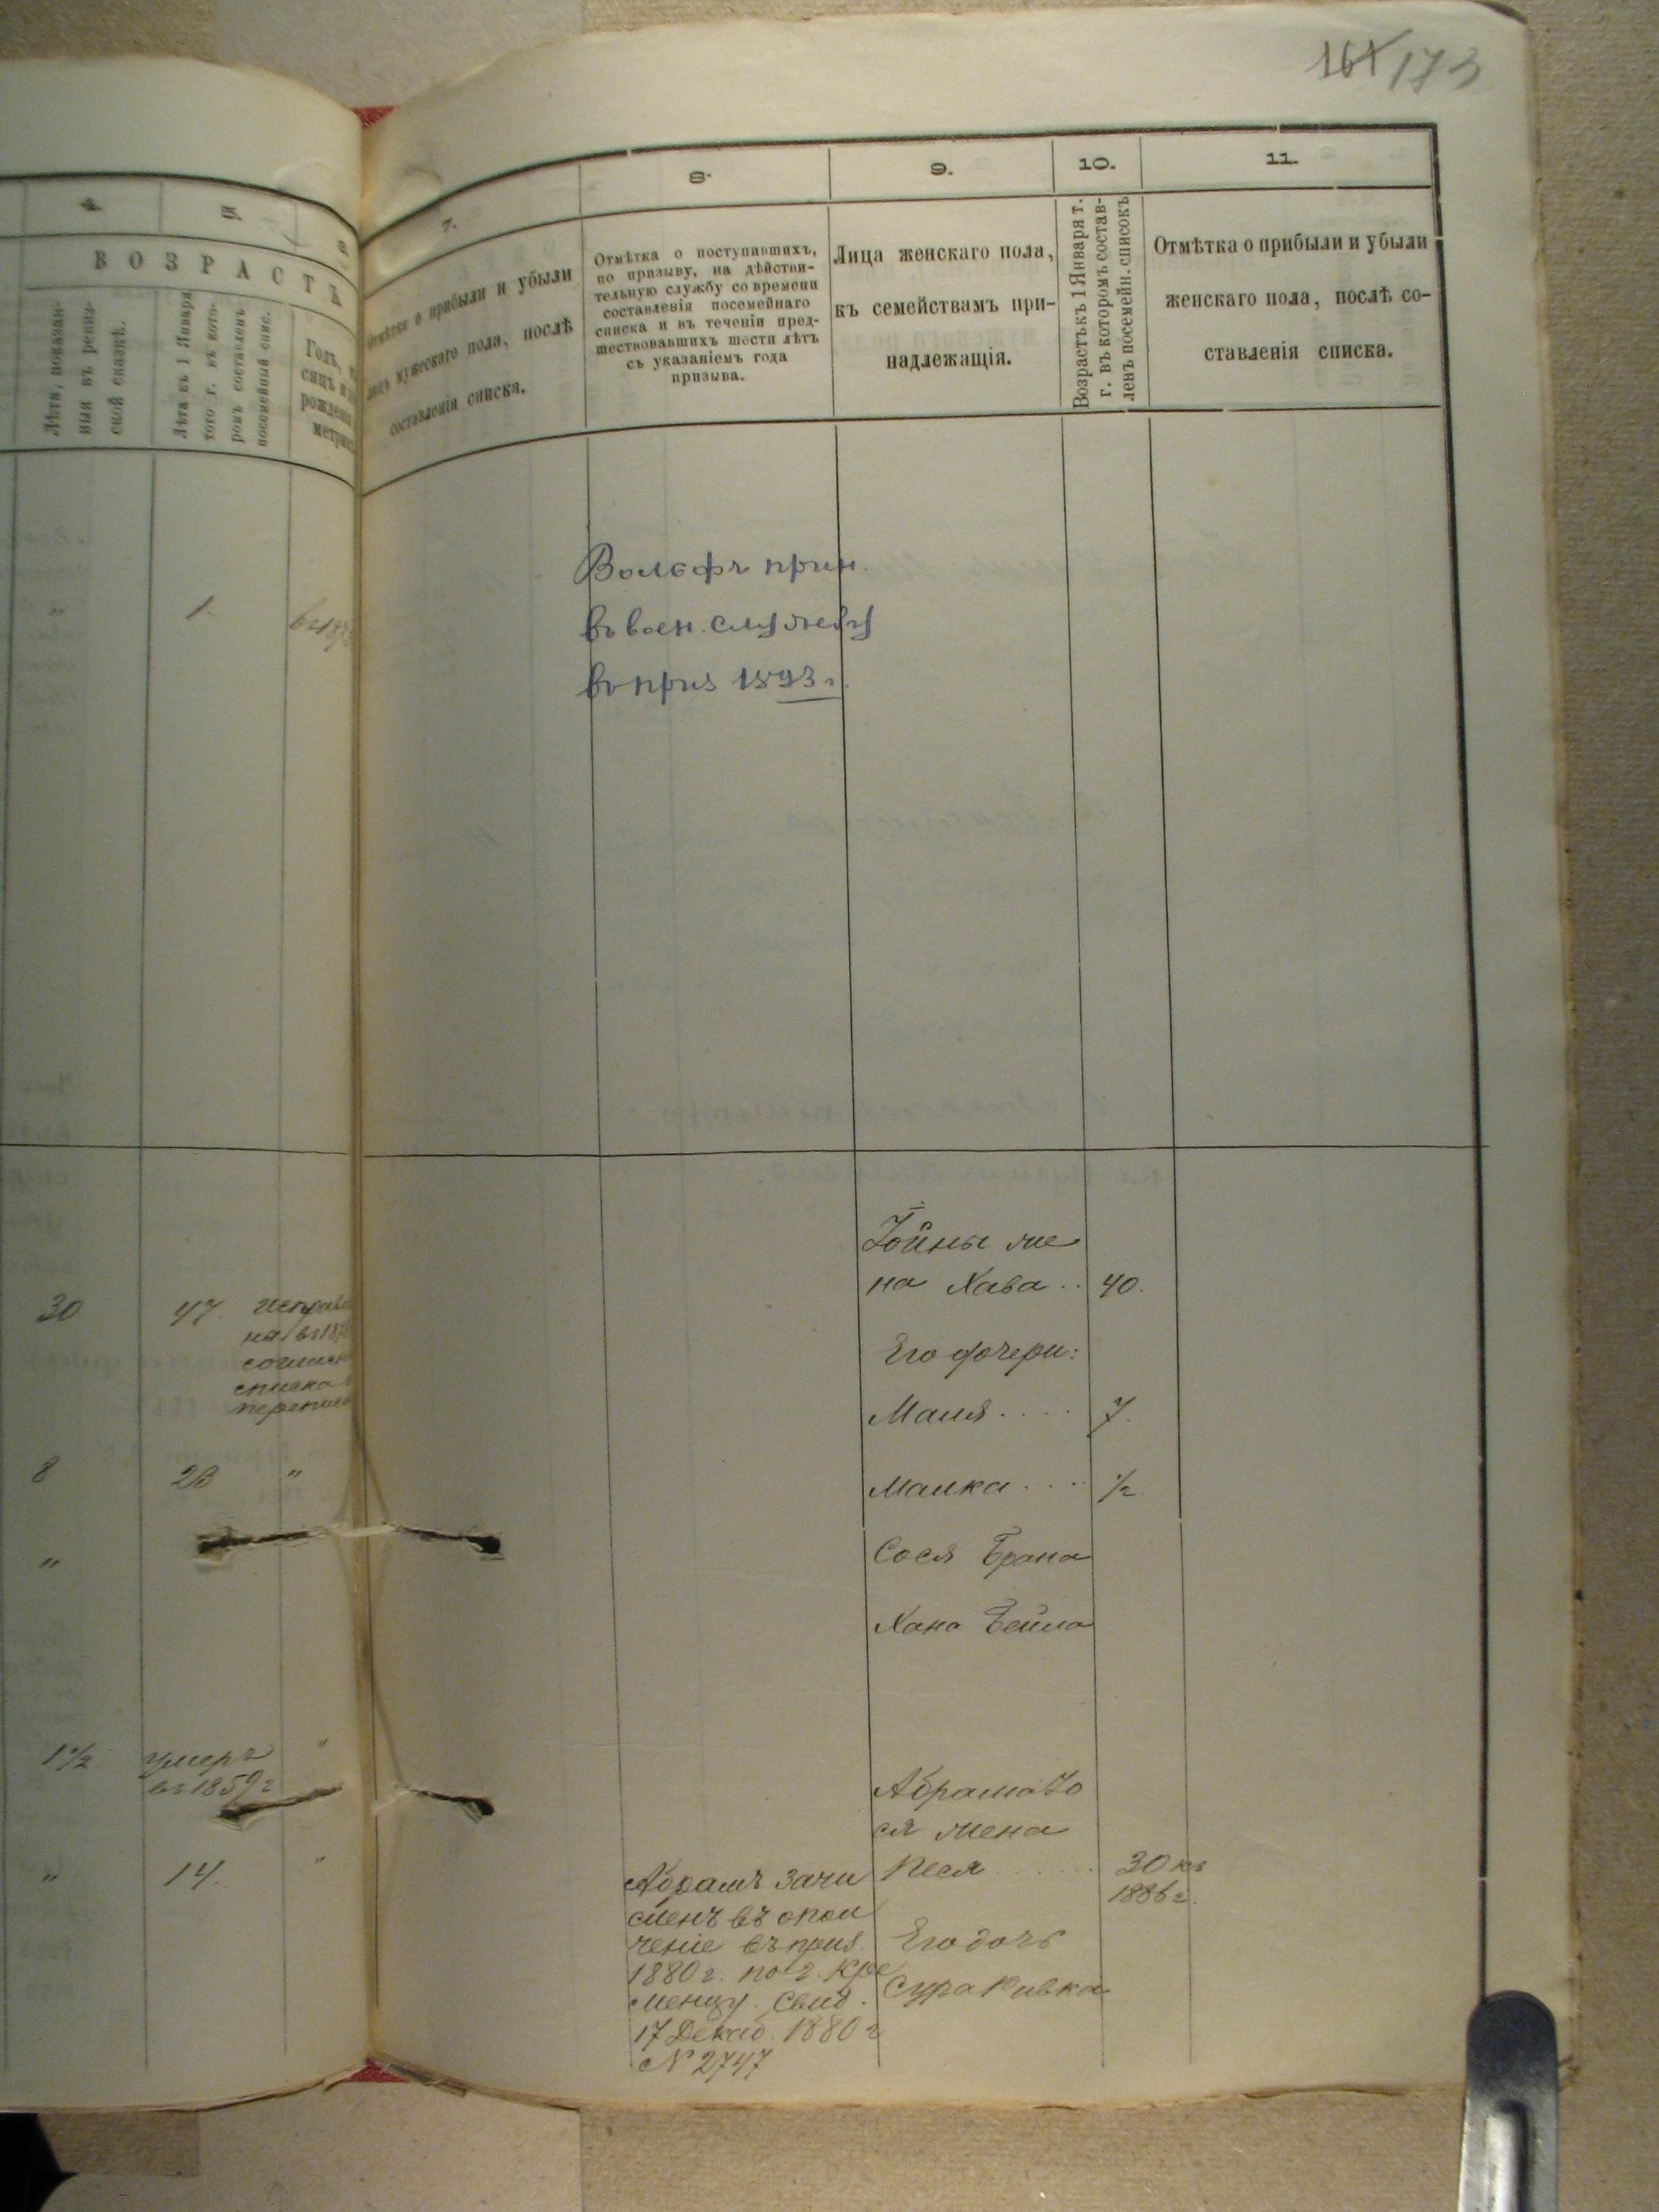 161 173
4. 5. 6
ВОЗРАСТЪ
Лѣта, показан-
ныя въ ревиз-
ской сказкѣ.
Лѣта къ 1 Января
того г. въ кото-
ромъ составленъ
посемейный спис.
Годъ,
рожденія
7.
Отмѣтки о прибыли и убыли
лицъ мужескаго пола, послѣ
составленія списка.
8.
Отмѣтка о поступившихъ,
по призыву, на дѣйстви-
тельную службу со времени
составленія посемейнаго
списка и въ теченіи пред-
шествовавшихъ шести лѣтъ
съ указаніемъ года
призыва.
9.
Лица женскаго пола,
къ семействамъ при-
надлежащія.
10.
Возрастъ къ 1 Января т.
г. въ которомъ состав-
ленъ посемейн. списокъ
11.
Отмѣтка о прибыли и убыли
женскаго пола, послѣ со-
ставленія списка.
" 1.
Вольфъ прин.
въ воен. службу
въ приз 1893 г.
Іойны же
на Хава .. 40.
30 47.
Его дочери:
Маля .... 7.
8 23 "
Малка .... ½
"
Сося Брана
Хана Бейла
1½ умеръ "
въ 1859 г
Абрама Іо
ся жена
Песя ...... 30 къ
1886 г.
Его дочь
Сура Ривка
" 14. "
Абрамъ зачи
сленъ въ опол
ченіе въ приз.
1880 г. по г. Кре
менцу. Свид.
17 Декаб. 1880 г
№ 2747